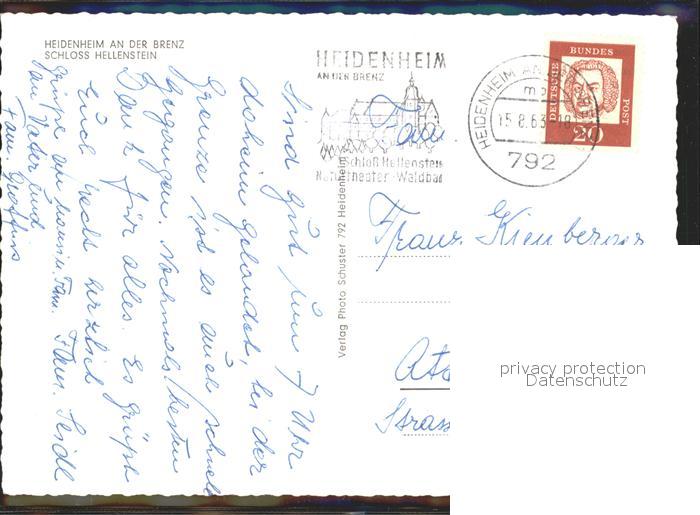 HEIDENHEIM AN DER BRENZ
SCHLOSS HELLENSTEIN
HEIDENHEIM
AN DER BRENZ
Schloß Hellenstein
Naturtheater-Waldbad
HEIDENHEIM AN
15.8.63-18
792
DEUTSCHE BUNDES POST
20
Verlag Photo Schuster 792 Heidenheim
Sind gut um 7 Uhr
daheim gelandet, bei der
Grenze ist es auch schnell
gegangen. Nochmals besten
Dank für alles. Es grüßt
Euch recht herzlich
Fam. Seidl
Grüße von
von Vater und
Fam.
Fam.
Franz
Strass
privacy protection
Datenschutz